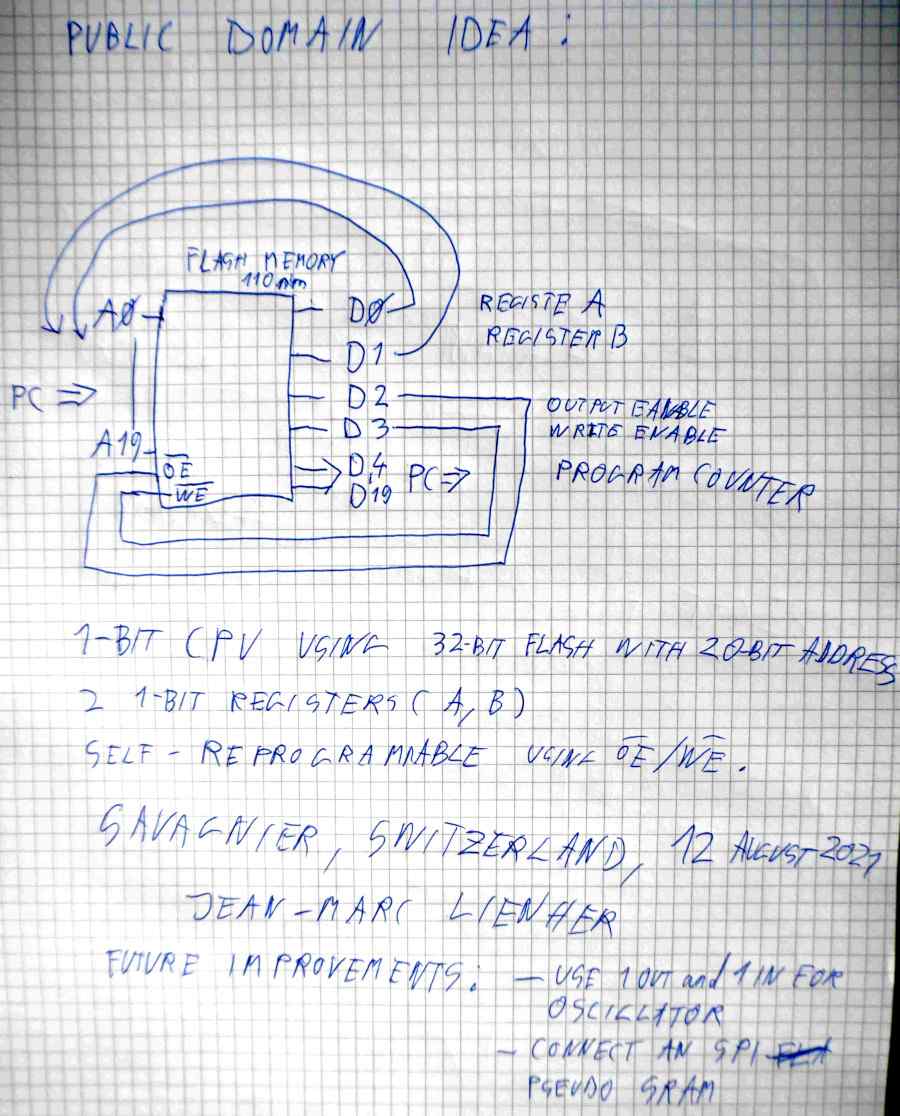 PUBLIC DOMAIN IDEA:
FLASH MEMORY
110nm
A0
D0
REGISTE A
D1
REGISTER B
PC ⇒
D2
OUTPUT EANBLE
D3
WRITE ENABLE
A19
OE
WE
D4
D19
PC ⇒
PROGRAM COUNTER
1-BIT CPU USING 32-BIT FLASH WITH 20-BIT ADDRESS
2 1-BIT REGISTERS (A, B)
SELF-REPROGRAMMABLE USING OE/WE.
SAVAGNIER, SWITZERLAND, 12 AUGUST 2021
JEAN-MARC LIENHER
FUTURE IMPROVEMENTS: - USE 1 OUT and 1 IN FOR
OSCILLATOR
- CONNECT AN SPI
PSEUDO SRAM